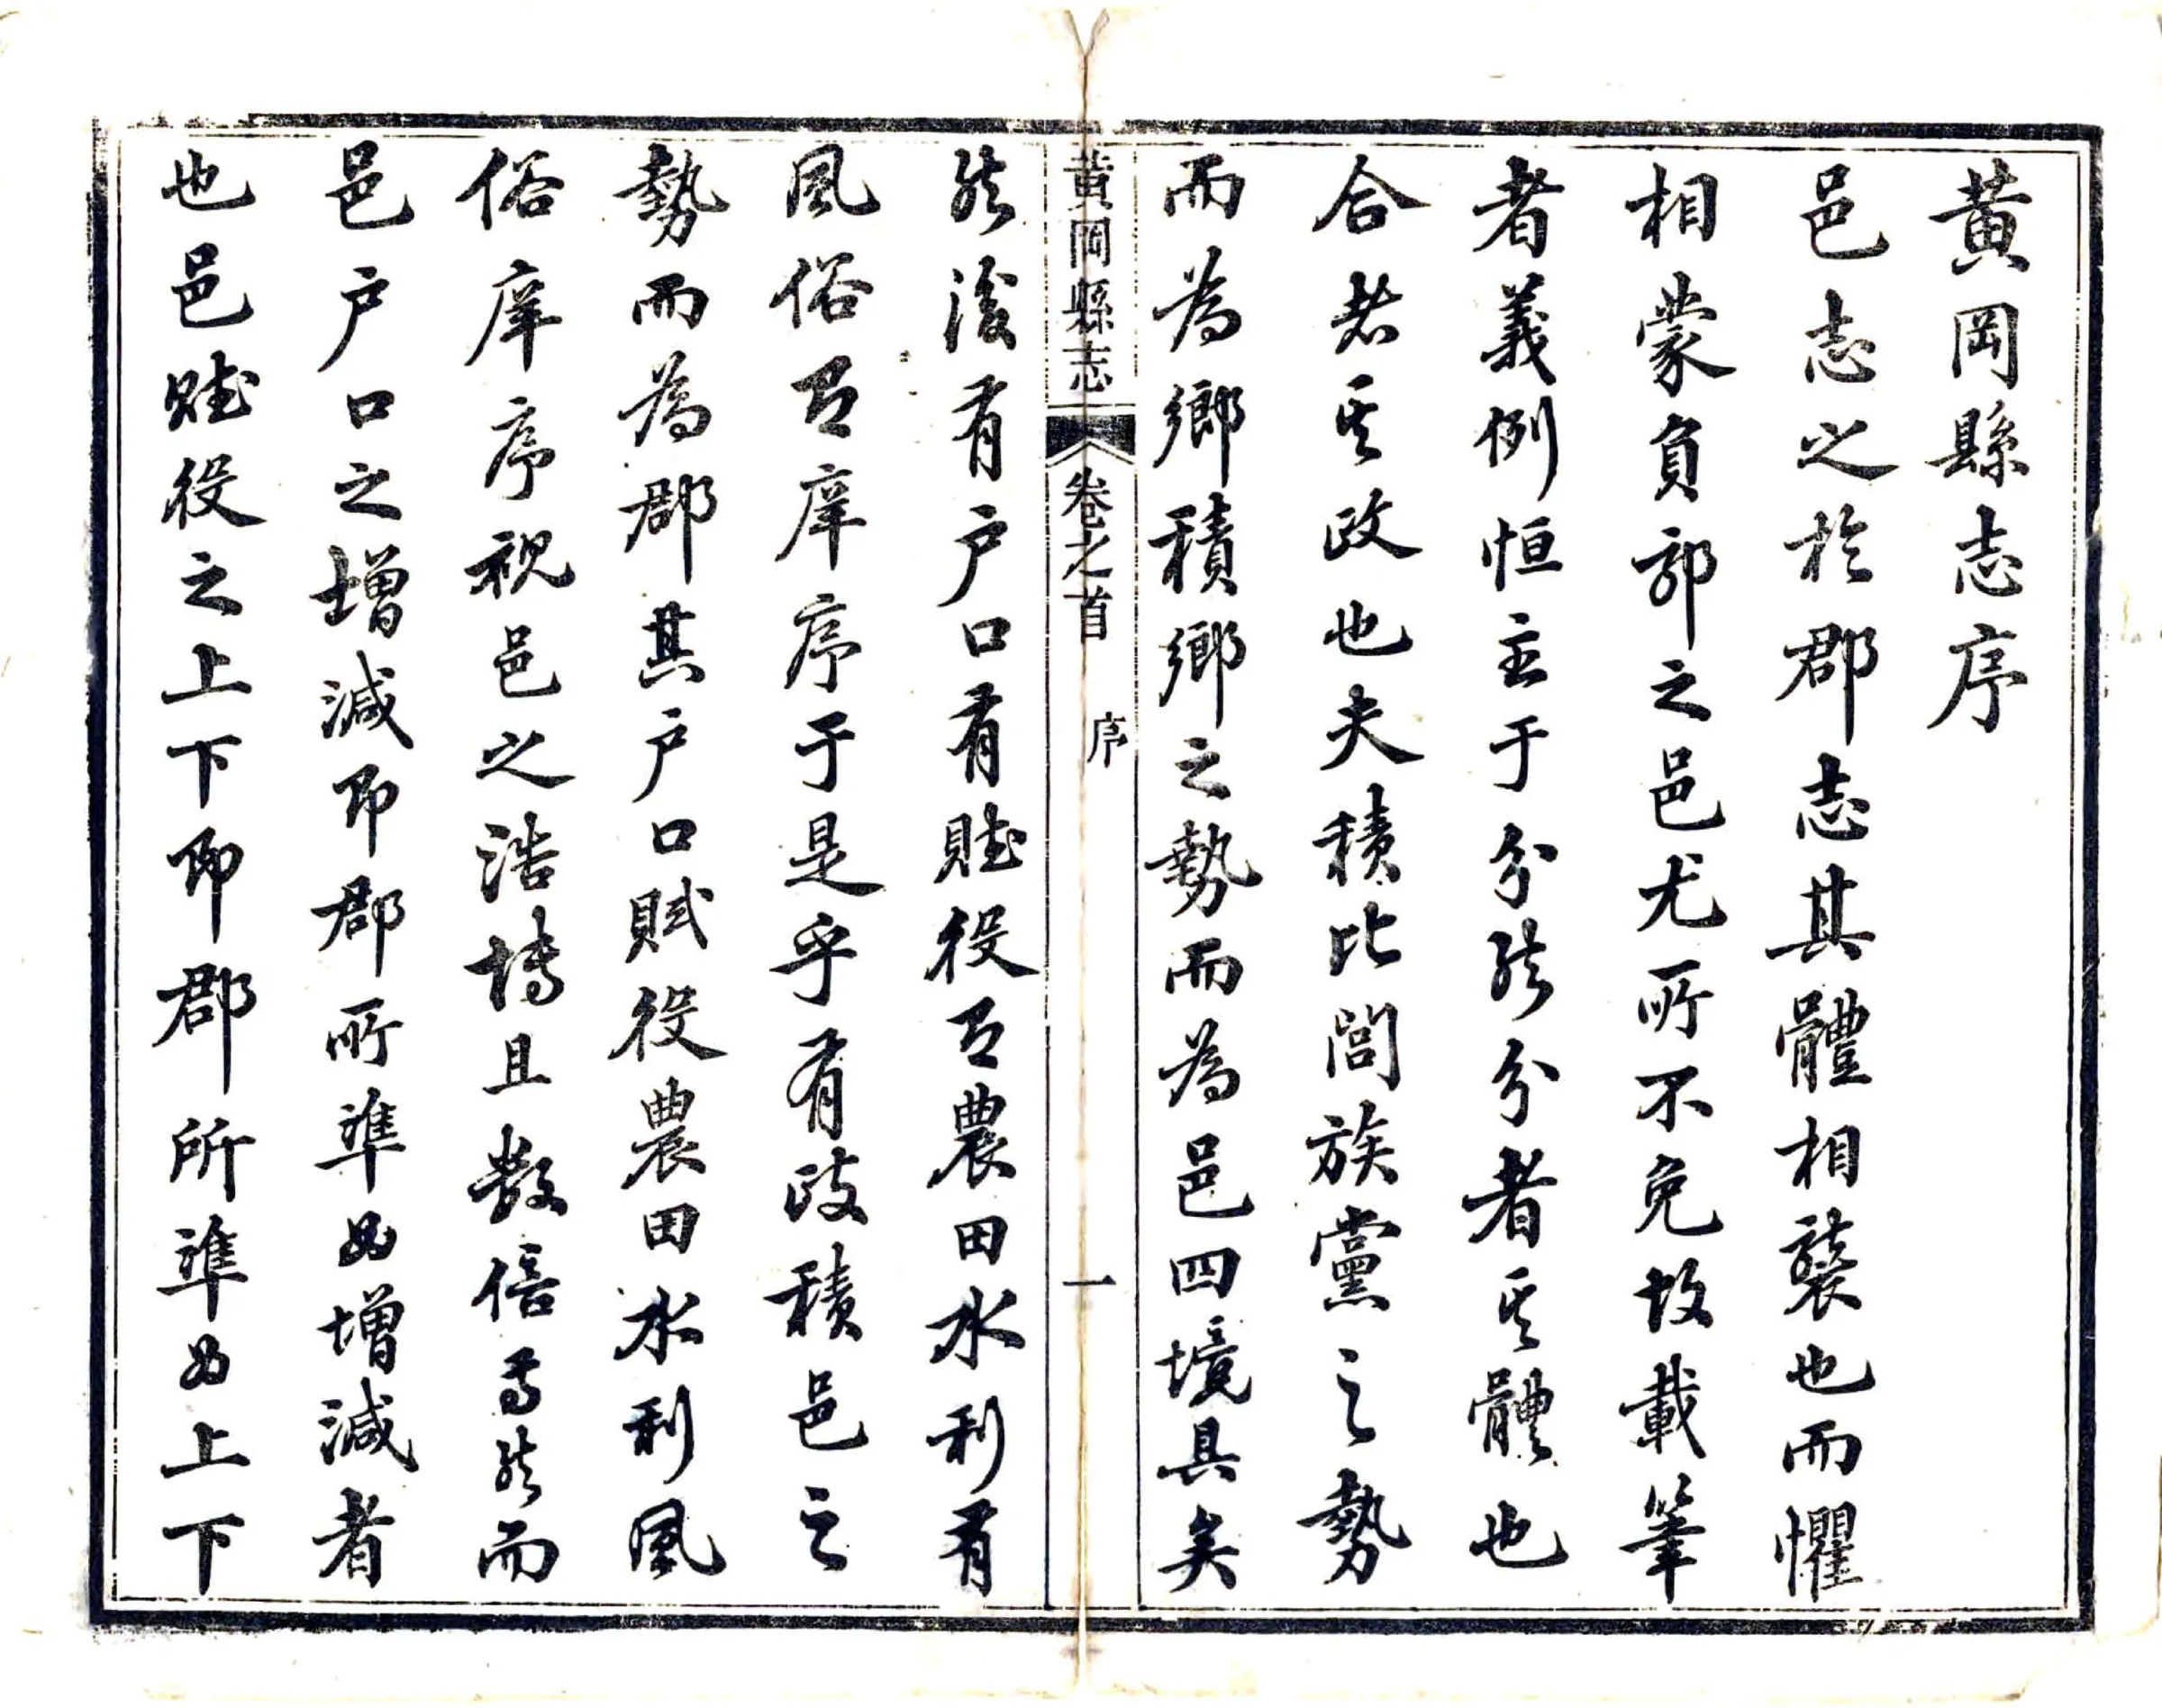 黃岡縣志序
邑志之於郡志其體相襲也而懼
相蒙負郭之邑尤所不免故載筆
者義例恒主于分然分者其體也
合者其政也夫積比閭族黨之勢
而為鄉積鄉之勢而為邑四境具矣
黃岡縣志 卷之首 序 一
然後有户口有賦役有農田水利有
風俗有庠序于是乎有政積邑之
勢而為郡其户口賦役農田水利風
俗庠序視邑之浩博且數倍焉然而
邑户口之增減即郡所準以增減者
也邑賦役之上下即郡所準以上下